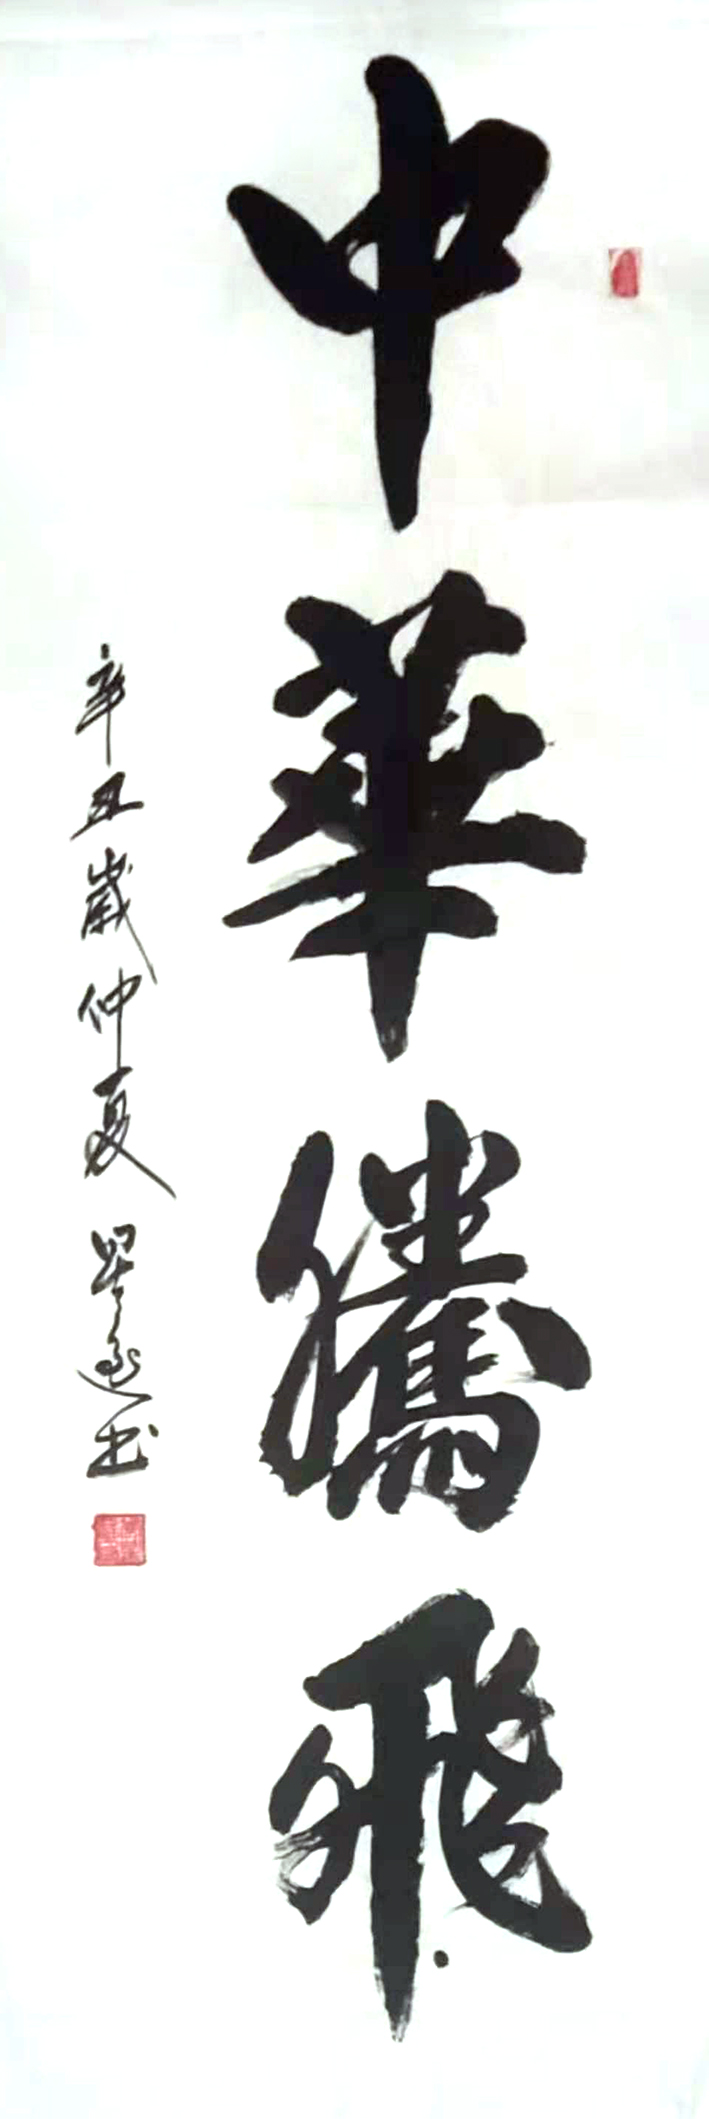 中華騰飛
辛丑歲仲夏
书